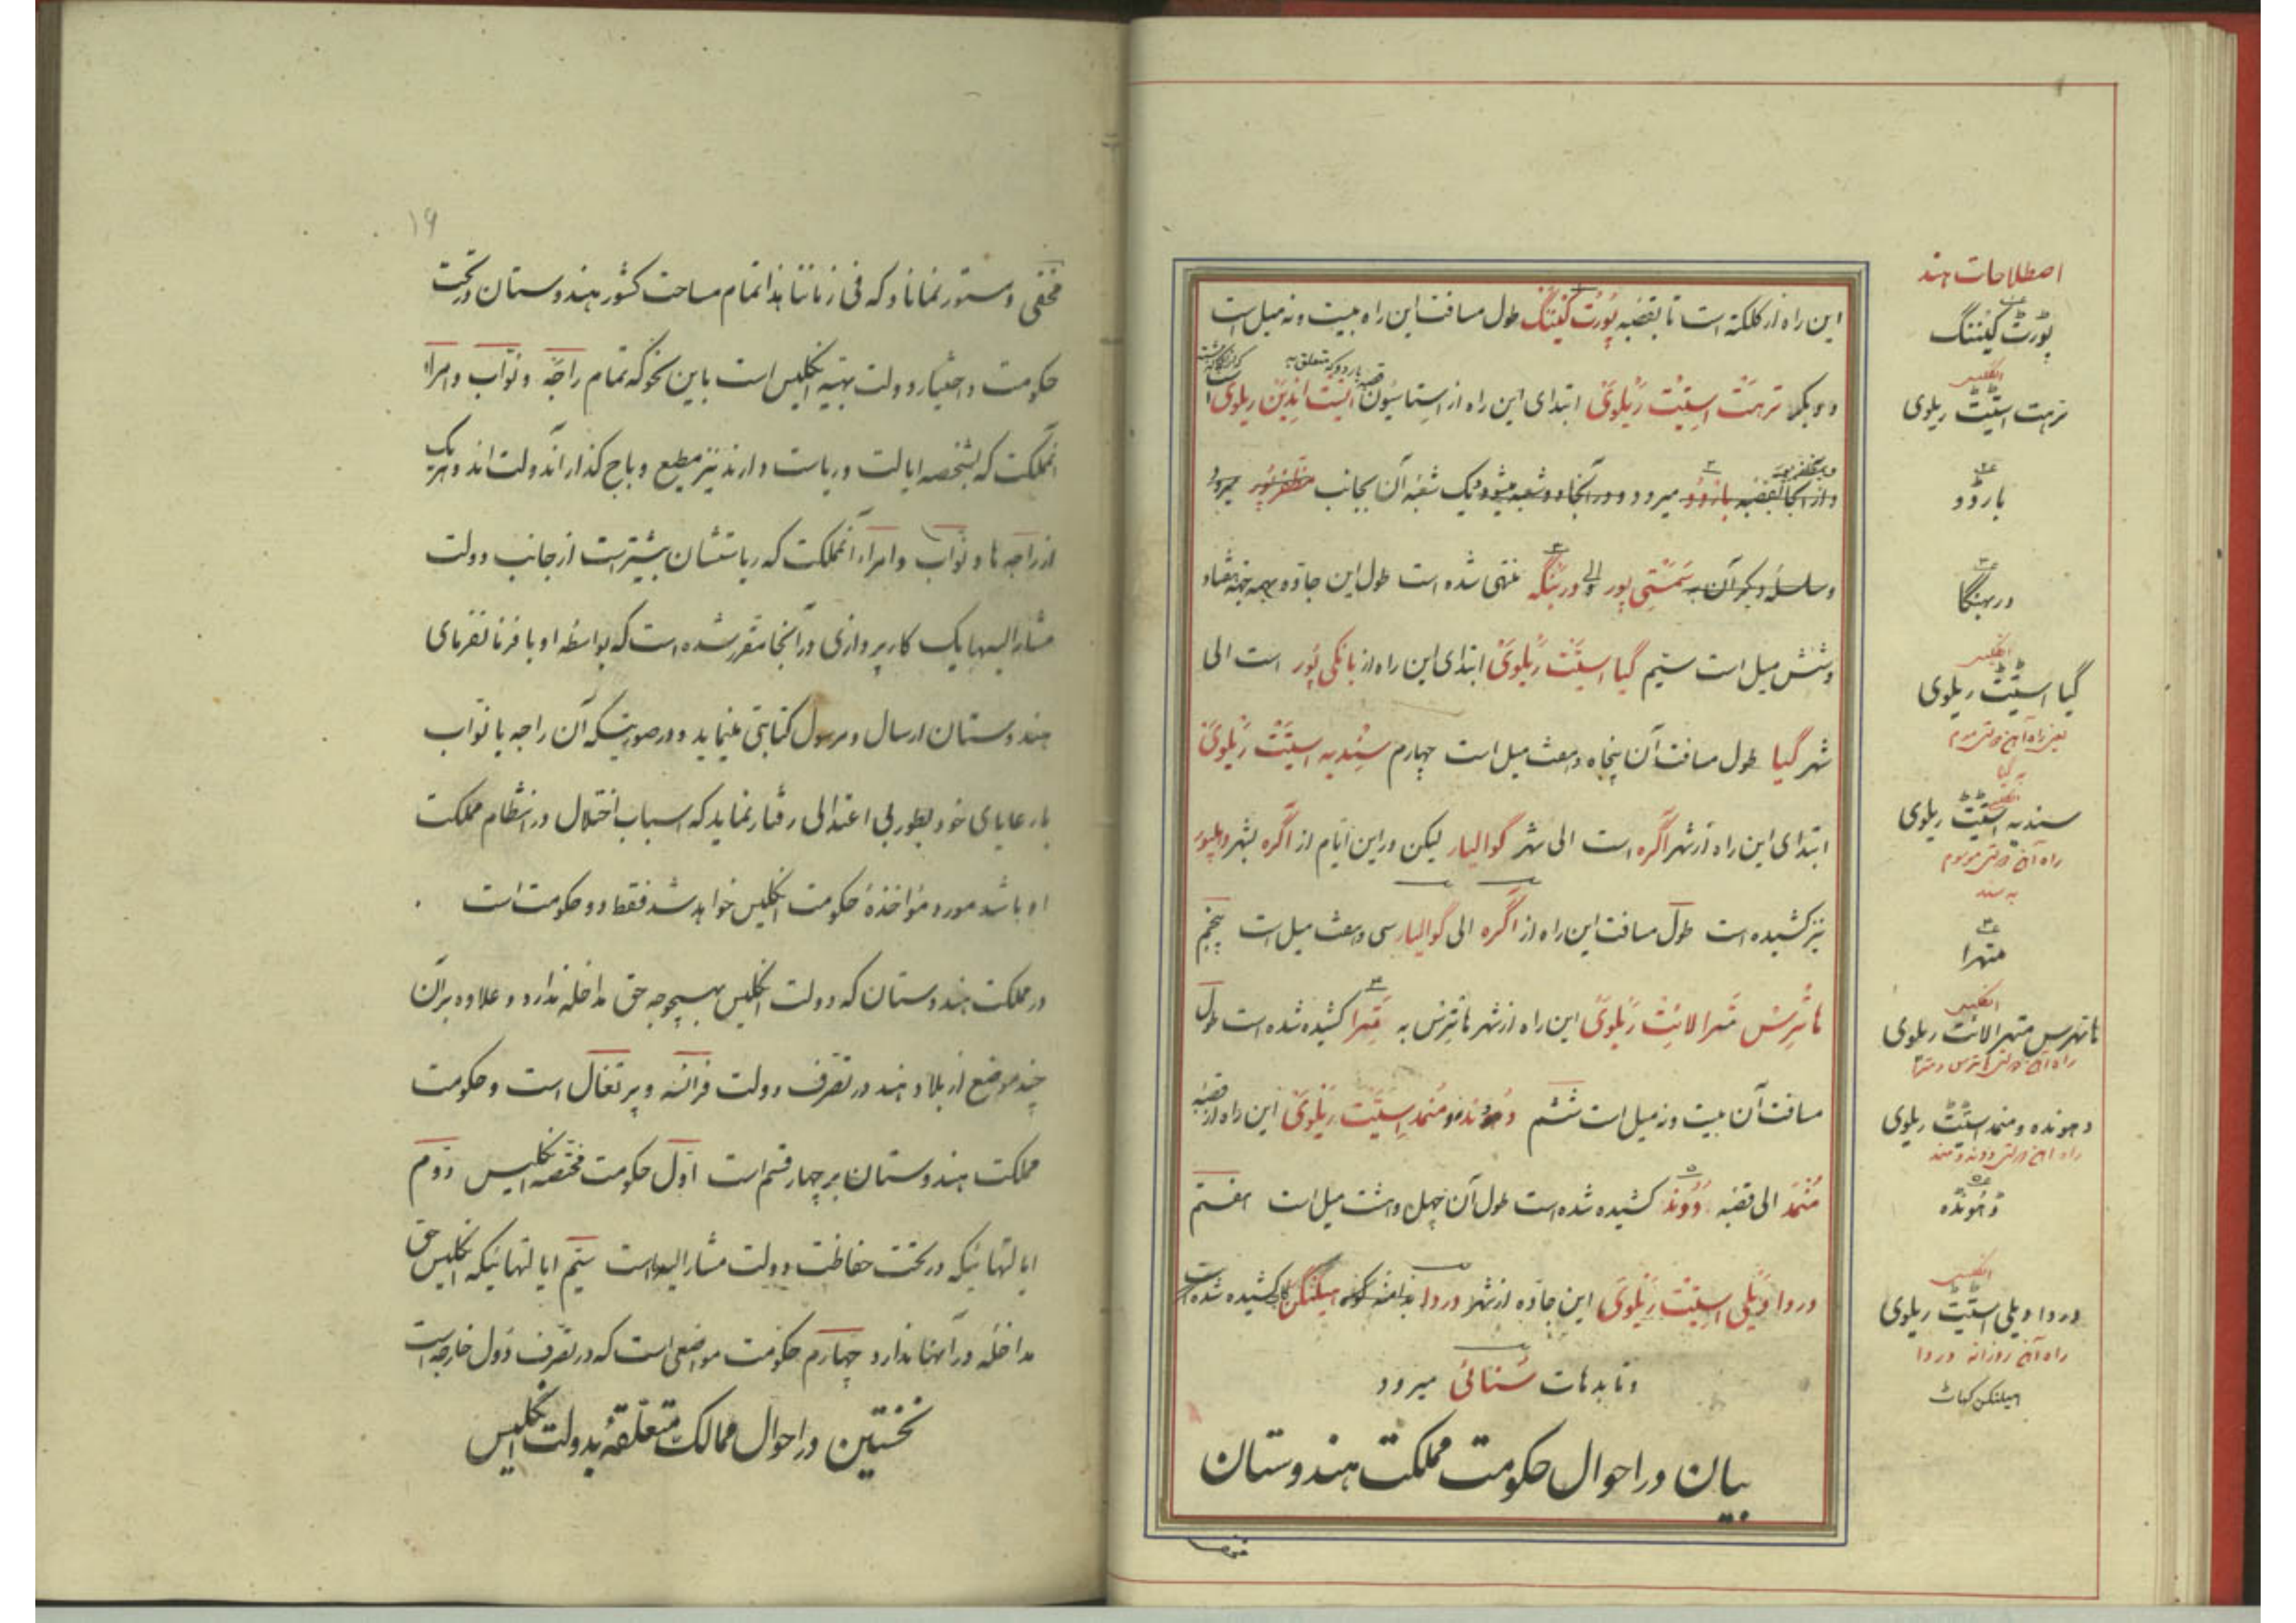 این راه از کلکته است تا بقصبه پُورت کَیننگ طول مسافت این راه بیست و نه میل است
دویکم تِرهت اِستِیت رَیْلوَیْ ابتدای این راه از استاسیون قصبه بار دو که متعلق به ایست اِندین ریلوی است
و از آنجا بقصبه بازدو میرود و در آنجا دو شعبه میشود یک شعبه آن بجانب مظفرپور میرود
و سلسله دیگر آن به سَمَستِی پور و الی دربنگه منتهی شده است طول این جاده
و شش میل است سیّم گیا استِیت رَیلوَیْ ابتدای این راه از بانکی پُور است الی
شهر گیا طول مسافت آن پنجاه و هفت میل است چهارم سِندیه استِیت رَیلوَیْ
ابتدای این راه از شهر آگره است الی شهر گوالیار لیکن در این ایّام از آگره بشهر دهلپور
نیز کشیده است طول مسافت این راه از آگره الی گوالیار سی و هفت میل است پنجم
هاترس مَتهرا لائِت رَیلوَیْ این راه از شهر هاترس به مَتهرا کشیده شده است طول
مسافت آن بیست و نه میل است ششم دهوند و منمد استِیت رَیلوَیْ این راه از قصبه
مُنمَد الی قصبه دُوند کشیده شده است طول آن چهل و هشت میل است هفتم
وردا ویلی استِیت رَیلوَیْ این جاده از شهر وردا هیکنگن کات کشیده شده است
و تا بدهات میرود
بیان در احوال حکومت مملکت هندوستان
اصطلاحات هند
پورٹ کیننگ
انگلیسی
ترهت اسٹیٹ ریلوی
بارڈو
دربهنگا
انگلیسی
گیا اسٹیٹ ریلوی
یعنی راه آهن دولتی موسوم
به گیا
انگلیسی
سندیه اسٹیٹ ریلوی
راه آهن دولتی موسوم
به سند
متهرا
انگلیسی
هاتهرس متهرا لائٹ ریلوی
راه آهن دولتی هاترس و مترا
دهونده و منمد اسٹیٹ ریلوی
راه آهن دولتی دوند و منمد
دهونده
انگلیسی
وردا ویلی اسٹیٹ ریلوی
راه آهن روزانه وردا
هیکنگن کهاٹ
۱۹
مخفی و مستور نماناد که فی زماننا هذا تمام مساحت کشور هندوستان در تحت
حکومت و اختیار دولت بهیّه انگلیس است باین نحو که تمام راجه و نوّاب و امراء
آنمملکت که بشخصه ایالت و ریاست دارند نیز مطیع و باج گذار آندولت اند و هریک
از راجه ها و نوّاب و امراء آنمملکت که ریاستشان بیشتر است از جانب دولت
مشار الیها یک کارپردازی در آنجا مقرر شده است که بواسطه او با فرمانفرمای
هندوستان ارسال و مرسول کتابتی مینماید و در صورتیکه آن راجه یا نوّاب
با رعایای خود بطور بی اعتدالی رفتار نماید که اسباب اختلال در انتظام مملکت
او باشد مورد مؤاخذهٔ حکومت انگلیس خواهد شد فقط دو حکومت است
در مملکت هندوستان که دولت انگلیس بهیچوجه حق مداخله ندارد و علاوه بر آن
چند موضع از بلاد هند در تصرف دولت فرانسه و پرتغال است و حکومت
مملکت هندوستان بر چهار قسم است اوّل حکومت مختصه انگلیس دوّم
ایالتهائیکه در تحت حفاظت دولت مشار الیها است سیّم ایالتهائیکه انگلیس حق
مداخله در آنها ندارد چهارم حکومت مواضعی است که در تصرف دُول خارجه است
نخستین در احوال ممالک متعلّقهٔ بدولت انگلیس